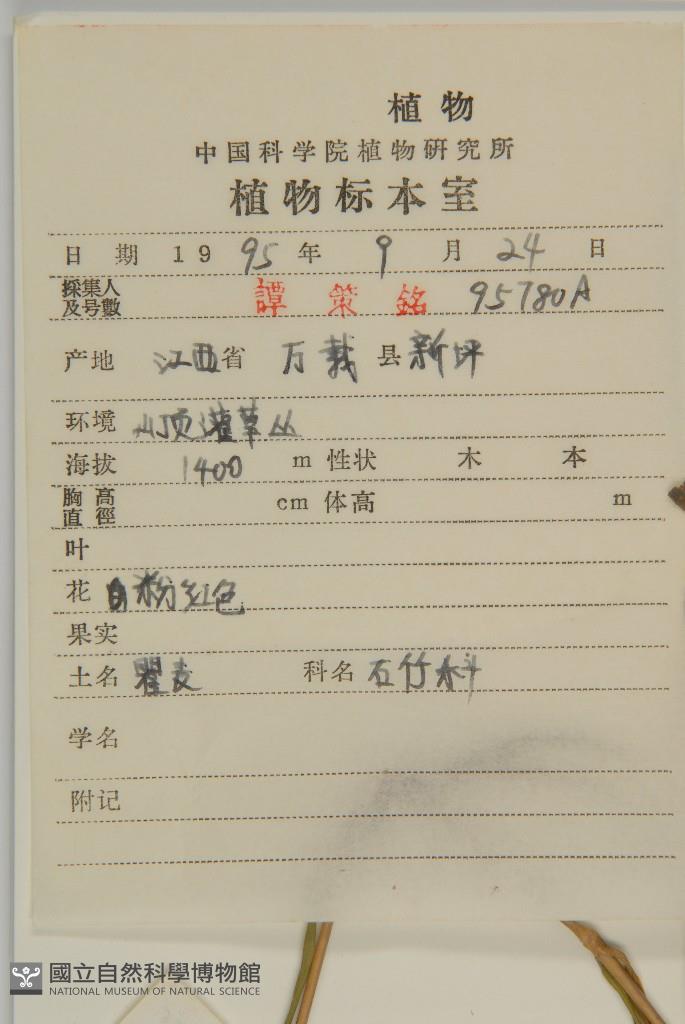 植物
中国科学院植物研究所
植物标本室
日期 1995年 9月 24日
採集人及号數 譚策銘 95780A
产地 江西省 万栽县新坪
环境 山顶灌草丛
海拔 1400 m 性状 木 本
胸高直徑 cm 体高 m
叶
花 白粉红色
果实
土名 瞿麦 科名 石竹科
学名
附记
國立自然科學博物館
NATIONAL MUSEUM OF NATURAL SCIENCE